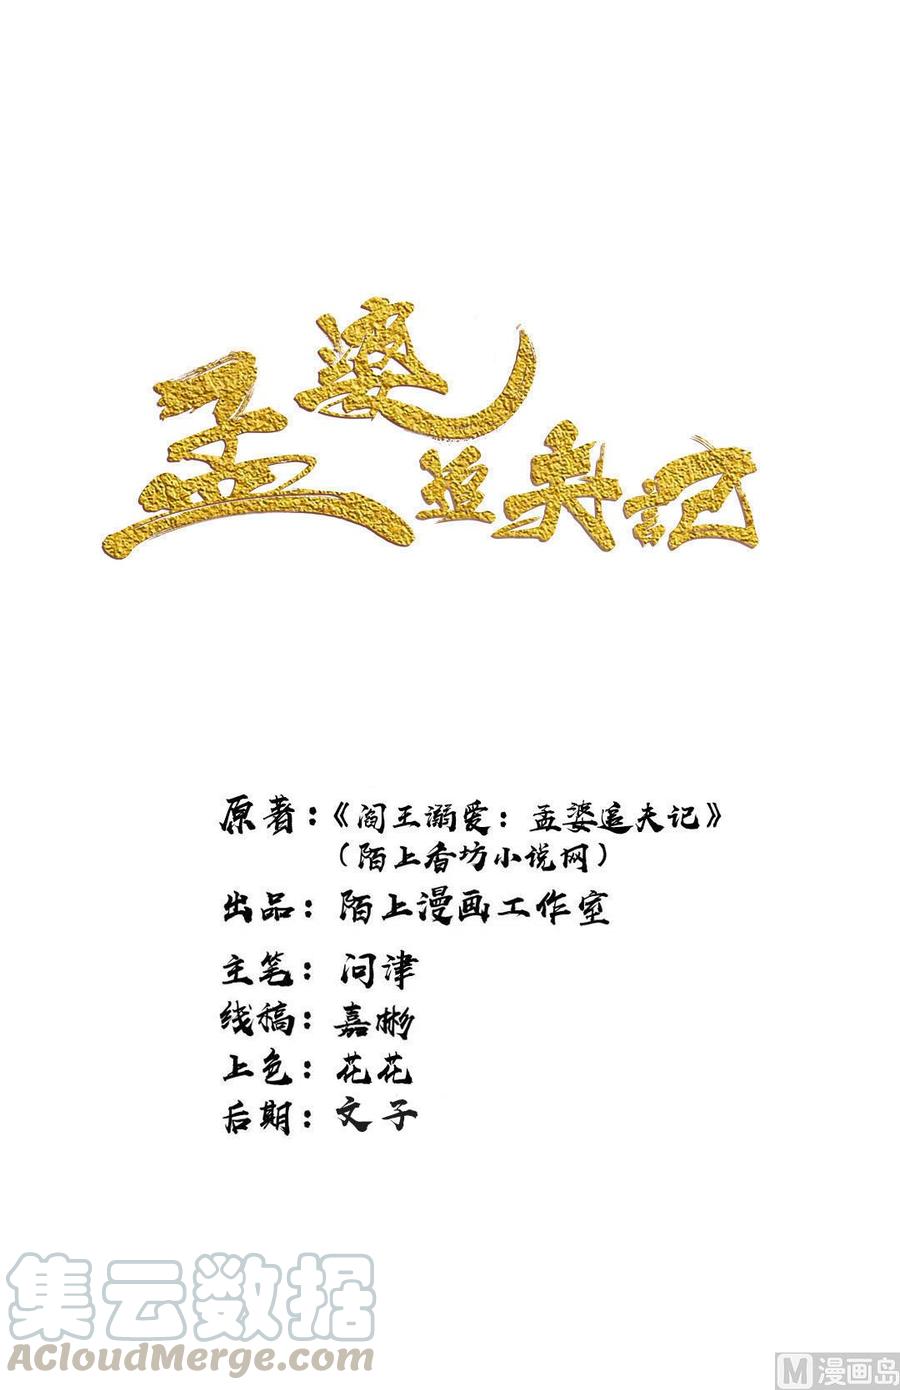 孟婆追夫记
原著：《阎王溺爱：孟婆追夫记》
（陌上香坊小说网）
出品：陌上漫画工作室
主笔：问津
线稿：嘉彬
上色：花花
后期：文子
集云数据
AcloudMerge.com
M漫画岛